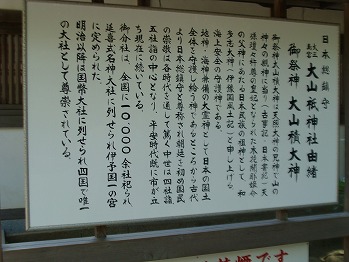 日本総鎮守
大山祇神社由緒
御祭神 大山積大神
御祭神大山積大神は天照大神の兄神で山の
神々の親神に当り(古事記・日本書紀)天
孫瓊々杵尊の皇妃としられた木花開耶姫命
の父神にあたる日本民族の祖神として和
多志大神(伊豫国風土記)と申し上げる
海上安全の守護神である
地神・海神兼備の大霊神として日本の国土
全体を守護し給う神であるところから古代
より日本総鎮守と尊称され朝廷を初め国民
の崇敬は各時代を通して篤く中世は四社詣
五社詣の中心となり平安時代既に市が立
ち現在に続いている
御分社は、全国に一〇、〇〇〇余社祀られ
延喜式名神大社に列せられ伊予国一の宮
に定められた
明治以降は国幣大社に列せられ四国で唯一
の大社として尊崇されている
煙です